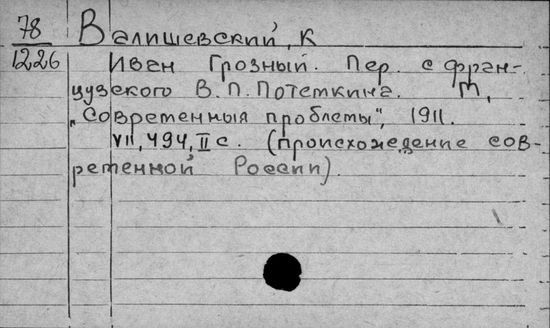 78 Валишевский, К
1226 Иван Грозный. Пер. с фран-
цузского В.П. Потемкина. М,
„Современныя проблемы", 1911.
VII, 494, II с. (происхождение сов-
ременной России).